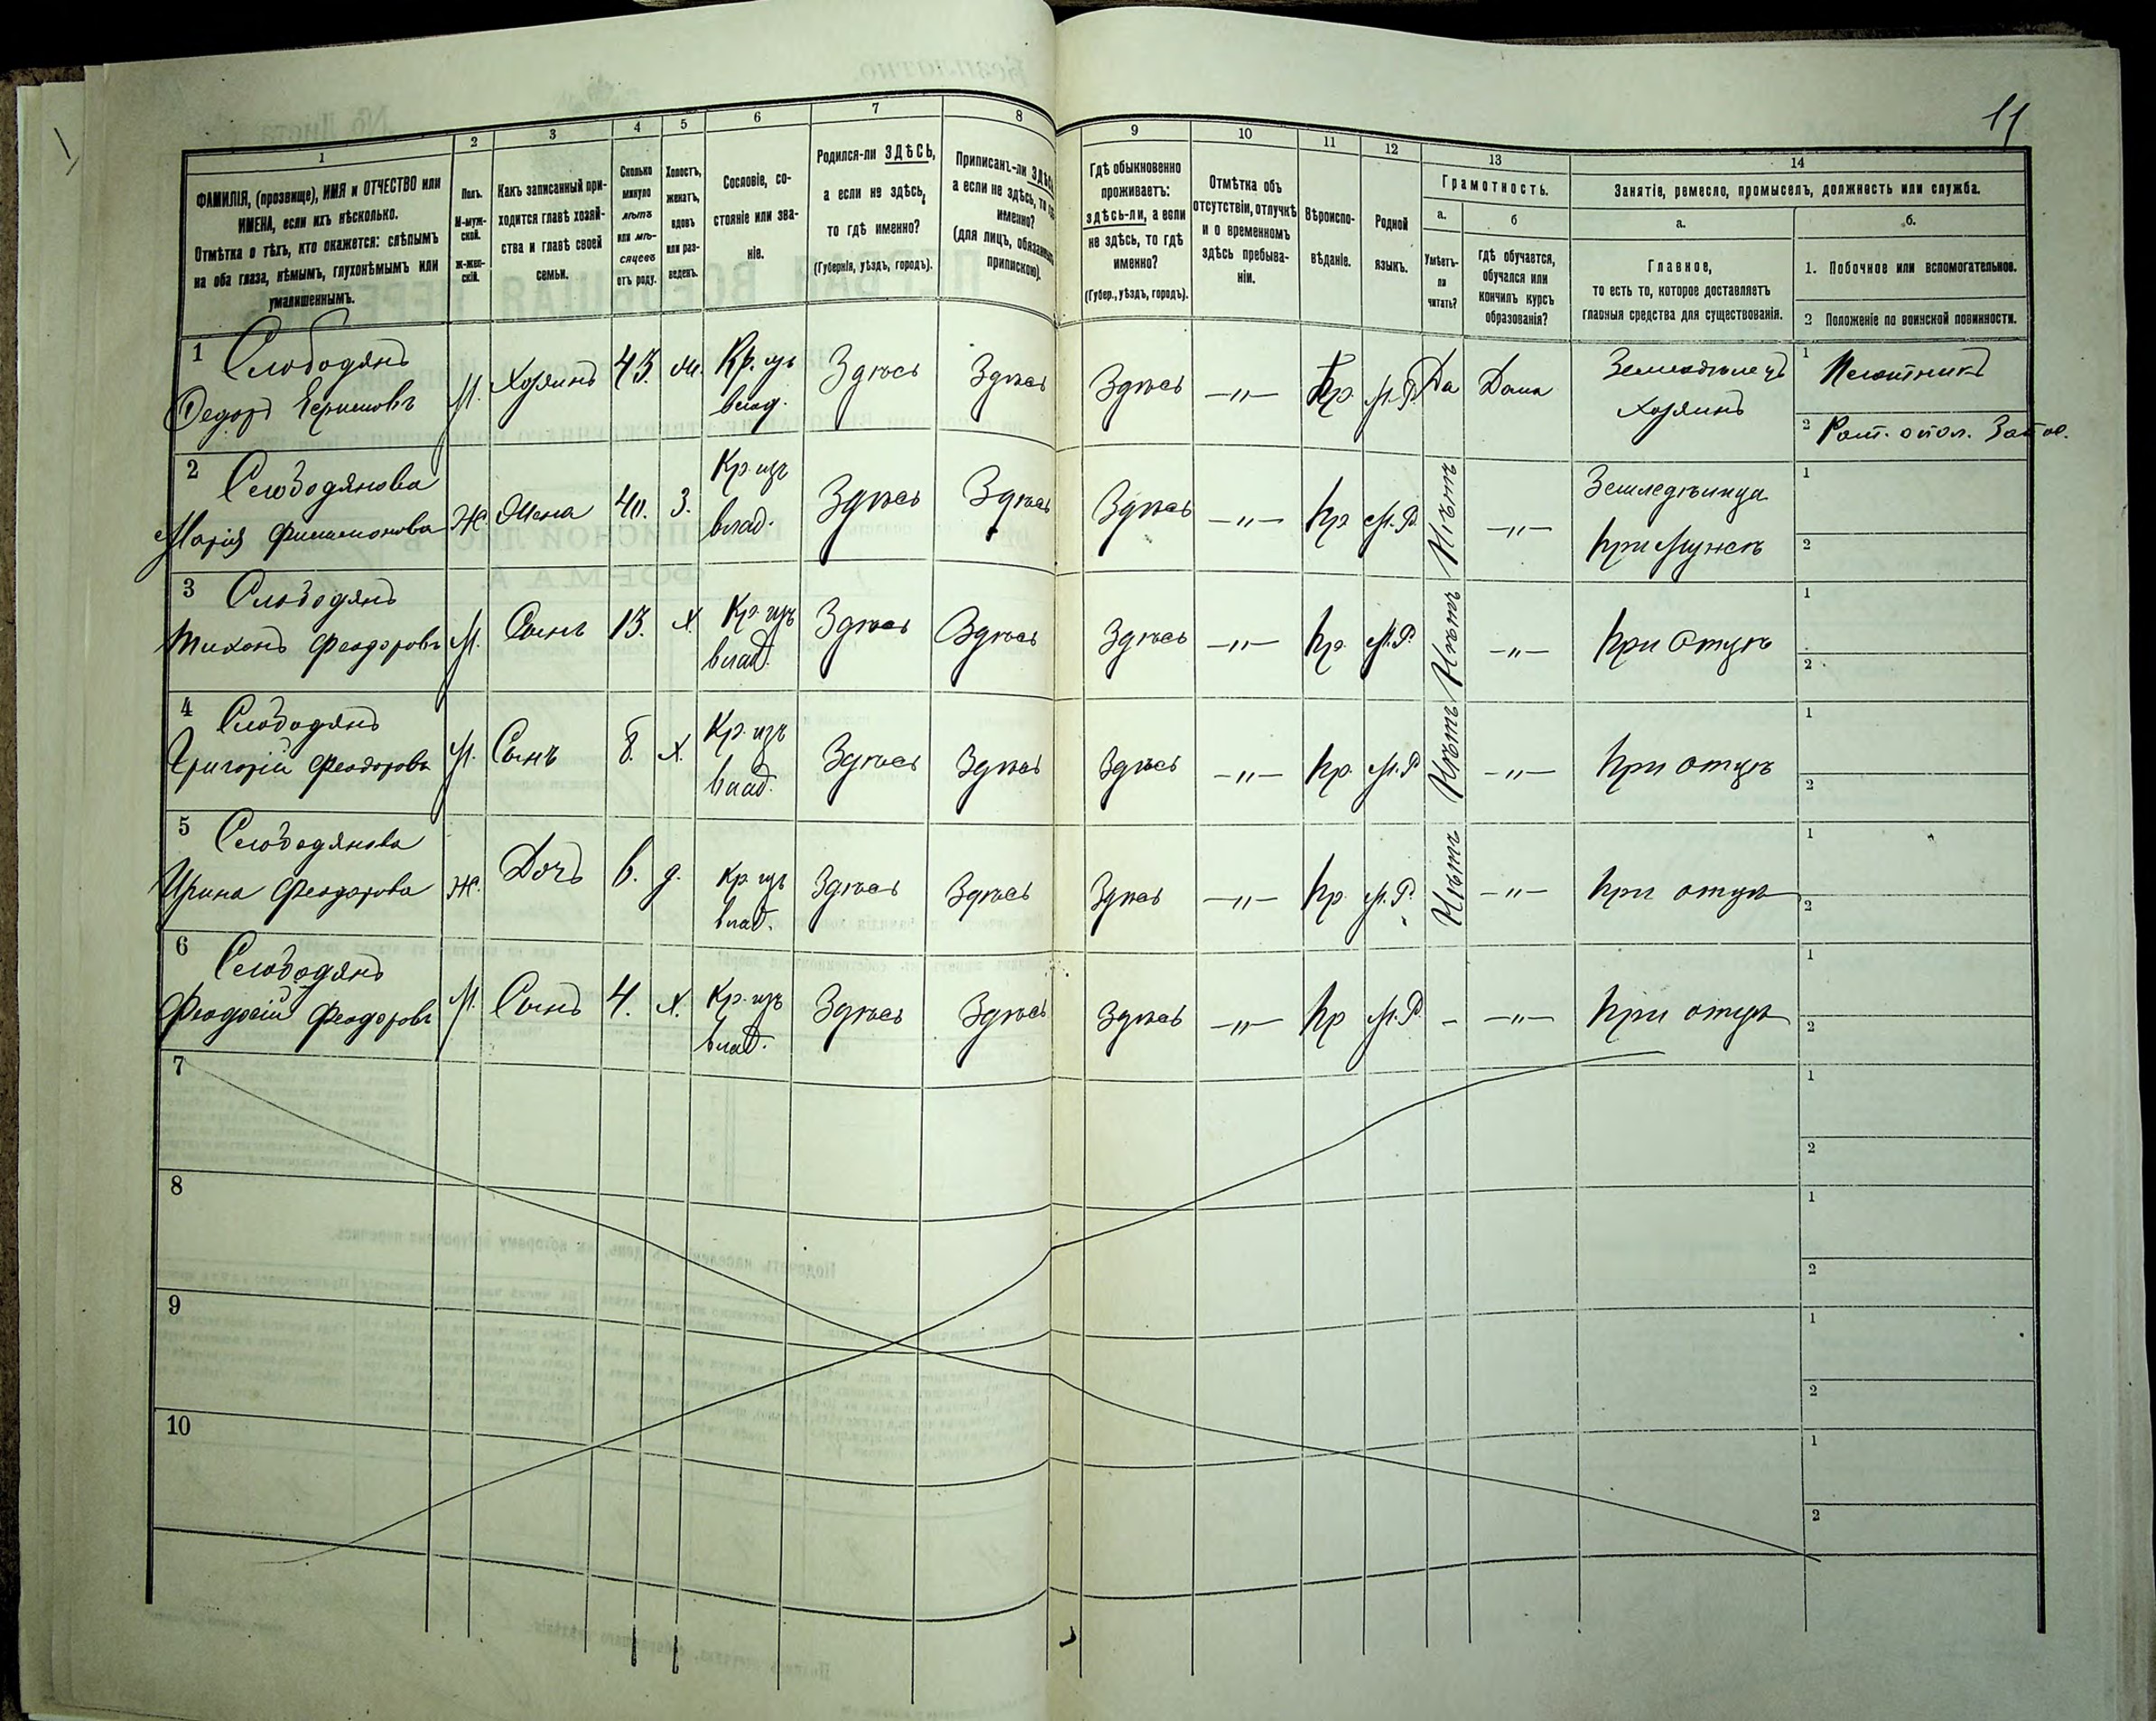 11
1 2 3 4 5 6 7 8 9 10 11 12 13 14
ФАМИЛІЯ, (прозвище), ИМЯ и ОТЧЕСТВО или
ИМЕНА, если ихъ нѣсколько.
Отмѣтка о тѣхъ, кто окажется: слѣпымъ
на оба глаза, нѣмымъ, глухонѣмымъ или
умалишеннымъ.
Полъ.
М-муж-
ской.
Ж-жен-
скій.
Какъ записанный при-
ходится главѣ хозяй-
ства и главѣ своей
семьи.
Сколько
минуло
лѣтъ
или мѣ-
сяцевъ
отъ роду.
Холостъ,
женатъ,
вдовъ
или раз-
веденъ.
Сословіе, со-
стояніе или зва-
ніе.
Родился-ли ЗДѢСЬ,
а если не здѣсь,
то гдѣ именно?
(Губернія, уѣздъ, городъ).
Приписанъ-ли ЗДѢСЬ,
а если не здѣсь, то гдѣ
именно?
(для лицъ, обязанныхъ
припискою).
Гдѣ обыкновенно
проживаетъ:
здѣсь-ли, а если
не здѣсь, то гдѣ
именно?
(Губер., уѣздъ, городъ).
Отмѣтка объ
отсутствіи, отлучкѣ
и о временномъ
здѣсь пребыва-
ніи.
Вѣроиспо-
вѣданіе.
Родной
языкъ.
Грамотность.
а.
Умѣетъ-
ли
читать?
б
гдѣ обучается,
обучался или
кончилъ курсъ
образованія?
Занятіе, ремесло, промыселъ, должность или служба.
а.
Главное,
то есть то, которое доставляетъ
главныя средства для существованія.
б.
1. Побочное или вспомогательное.
2 Положеніе по воинской повинности.
1 Слободянъ
Федоръ М. Хозяинъ 43. Кр. изъ влад. Здѣсь Здѣсь Здѣсь —"— Пр. М.Р. Да Дома Земледѣлецъ Хозяинъ 1 Плотникъ
2
2 Слободянова
Марія Филимонова Ж. Жена 40. З. Кр. изъ влад. Здѣсь Здѣсь Здѣсь —"— Пр М.Р. Нѣтъ —"— При Мужѣ 1
2
3 Слободянъ
Тихонъ Феодоровъ М. Сынъ 13. Х. Кр. изъ влад. Здѣсь Здѣсь Здѣсь —"— Пр. М.Р. Нѣтъ —"— При Отцѣ 1
2
4 Слободянъ
Григорій Феодоровъ М. Сынъ 8. Х. Кр. изъ влад. Здѣсь Здѣсь Здѣсь —"— Пр. М.Р. Нѣтъ —"— При отцѣ 1
2
5 Слободянова
Ирина Феодорова Ж. Дочь 6. д. Кр. изъ влад. Здѣсь Здѣсь Здѣсь —"— Пр. М.Р. Нѣтъ —"— При отцѣ 1
2
6 Слободянъ
Феодосій Феодоровъ М. Сынъ 4. Х. Кр. изъ влад. Здѣсь Здѣсь Здѣсь —"— Пр М.Р. - —"— При отцѣ 1
2
7 1
2
8 1
2
9 1
2
10 1
2